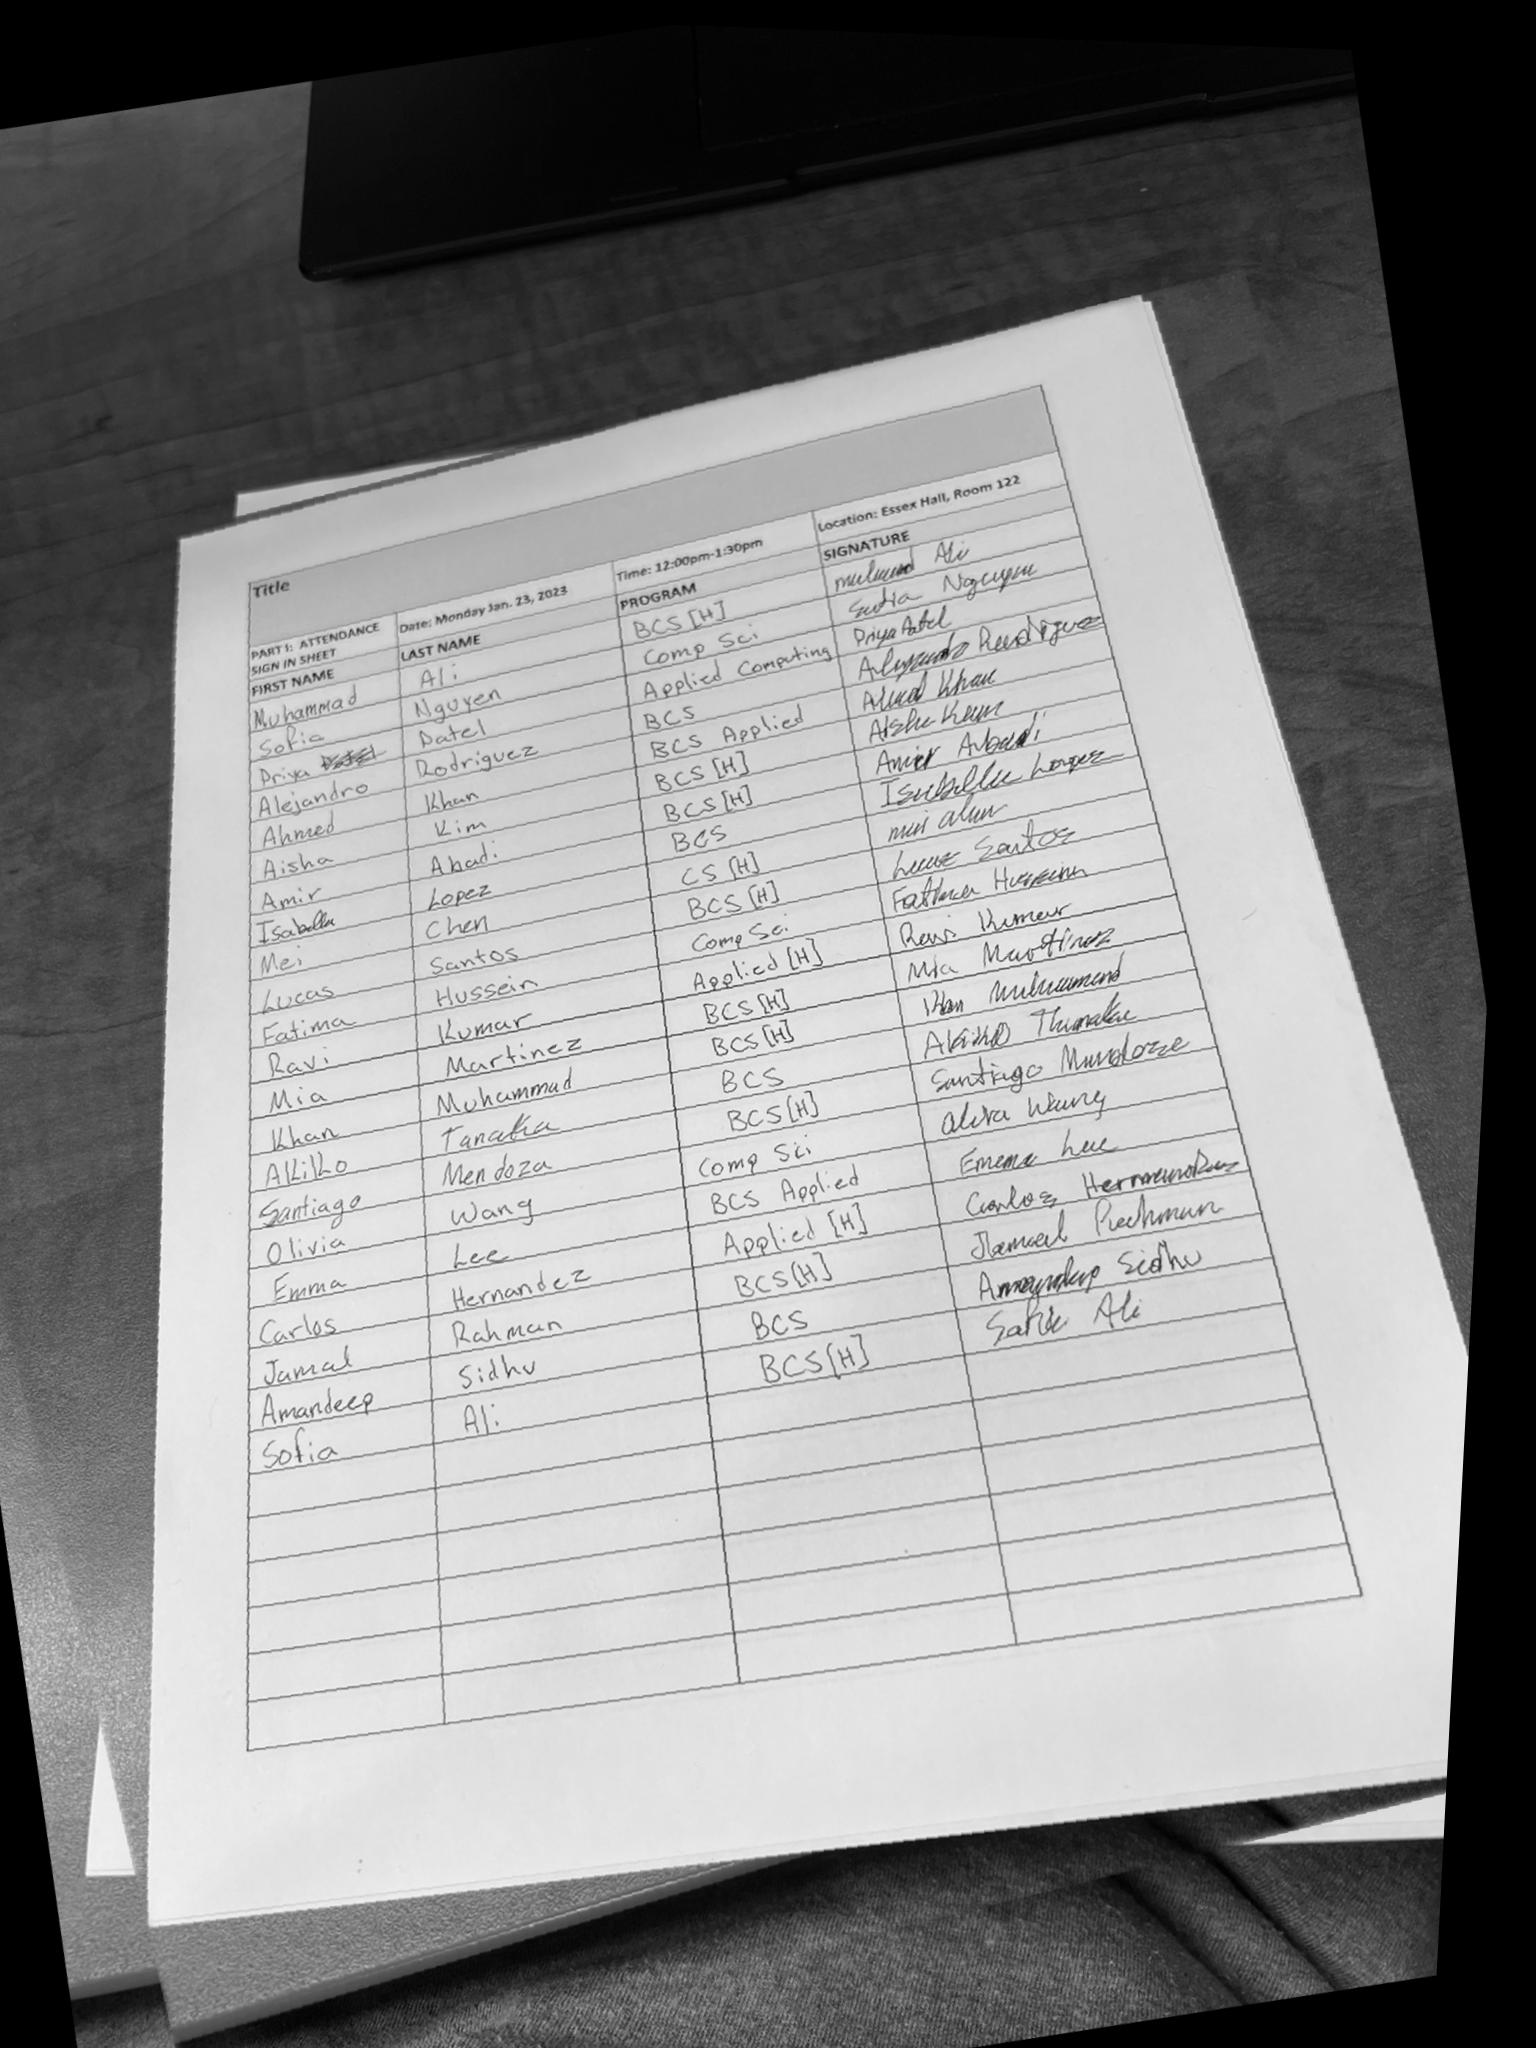 Title
PART I: ATTENDANCE SIGN IN SHEET Date: Monday Jan. 23, 2023 Time: 12:00pm-1:30pm Location: Essex Hall, Room 122
FIRST NAME LAST NAME PROGRAM SIGNATURE
Muhammad Ali BCS [H] Ali
Sofia Nguyen Comp Sci Sofia Nguyen
Priya Patel Applied Computing Priya Patel
Alejandro Rodriguez BCS Alejandro Rodriguez
Ahmed Khan BCS Applied Ahmed Khan
Aisha Kim BCS [H] Aisha Kim
Amir Abadi BCS [H] Amir Abadi
Isabella Lopez BCS Isabella Lopez
Mei Chen CS [H] mei chen
Lucas Santos BCS [H] Lucas Santos
Fatima Hussein Comp Sci Fatima Hussein
Ravi Kumar Applied [H] Ravi Kumar
Mia Martinez BCS [H] Mia Martinez
Khan Muhammad BCS [H] Khan Muhammad
AKiKo Tanaka BCS AKiKO Tanaka
Santiago Mendoza BCS [H] Santiago Mendoza
Olivia Wang Comp Sci Olivia Wang
Emma Lee BCS Applied Emma Lee
Carlos Hernandez Applied [H] Carlos Hernandez
Jamal Rahman BCS [H] Jamal Rahman
Amandeep Sidhu BCS Amandeep Sidhu
Sofia Ali BCS [H] Sofia Ali